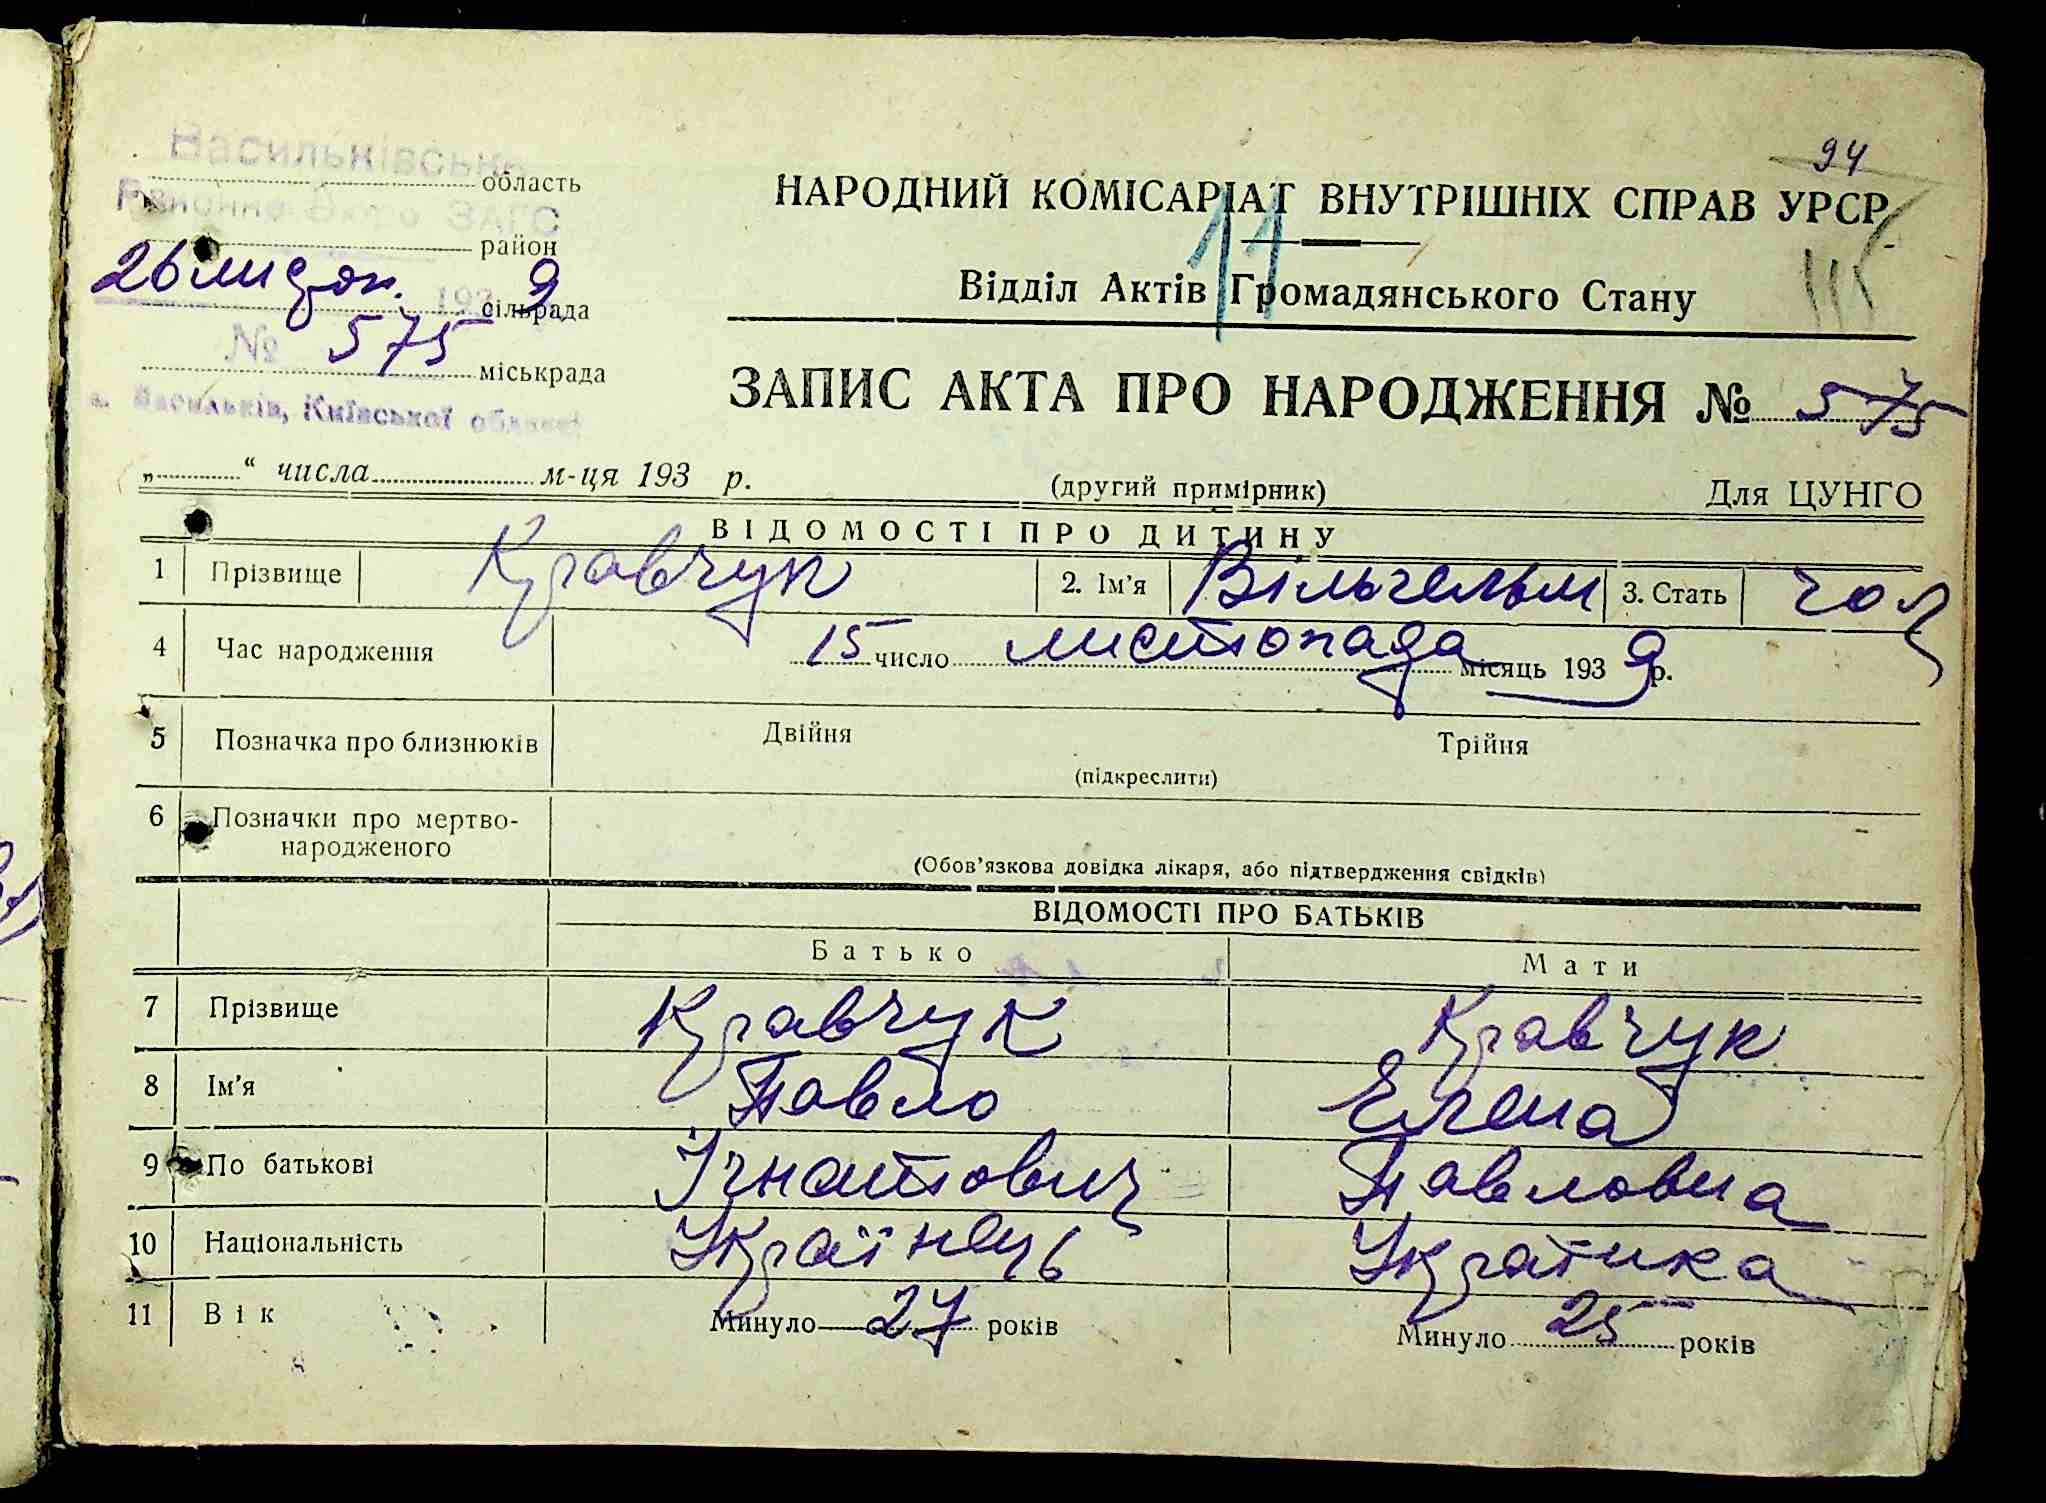 94
Васильківське
область
Районне бюро ЗАГС
район
26 листоп. 1939
сільрада
№ 575
міськрада
м. Васильків, Київської області
НАРОДНИЙ КОМІСАРІАТ ВНУТРІШНІХ СПРАВ УРСР
11
Відділ Актів Громадянського Стану
ЗАПИС АКТА ПРО НАРОДЖЕННЯ № 575
„ “ числа м-ця 193 р.
(другий примірник)
Для ЦУНГО
ВІДОМОСТІ ПРО ДИТИНУ
1 Прізвище Кравчук 2. Ім'я Вільгельм 3. Стать чол
4 Час народження 15 число листопада місяць 1939 р.
5 Позначка про близнюків Двійня Трійня
(підкреслити)
6 Позначки про мертво-
народженого
(Обов'язкова довідка лікаря, або підтвердження свідків)
ВІДОМОСТІ ПРО БАТЬКІВ
Батько Мати
7 Прізвище Кравчук Кравчук
8 Ім'я Павло Елена
9 По батькові Ігнатович Павловна
10 Національність Українець Українка
11 Вік Минуло 27 років Минуло 25 років